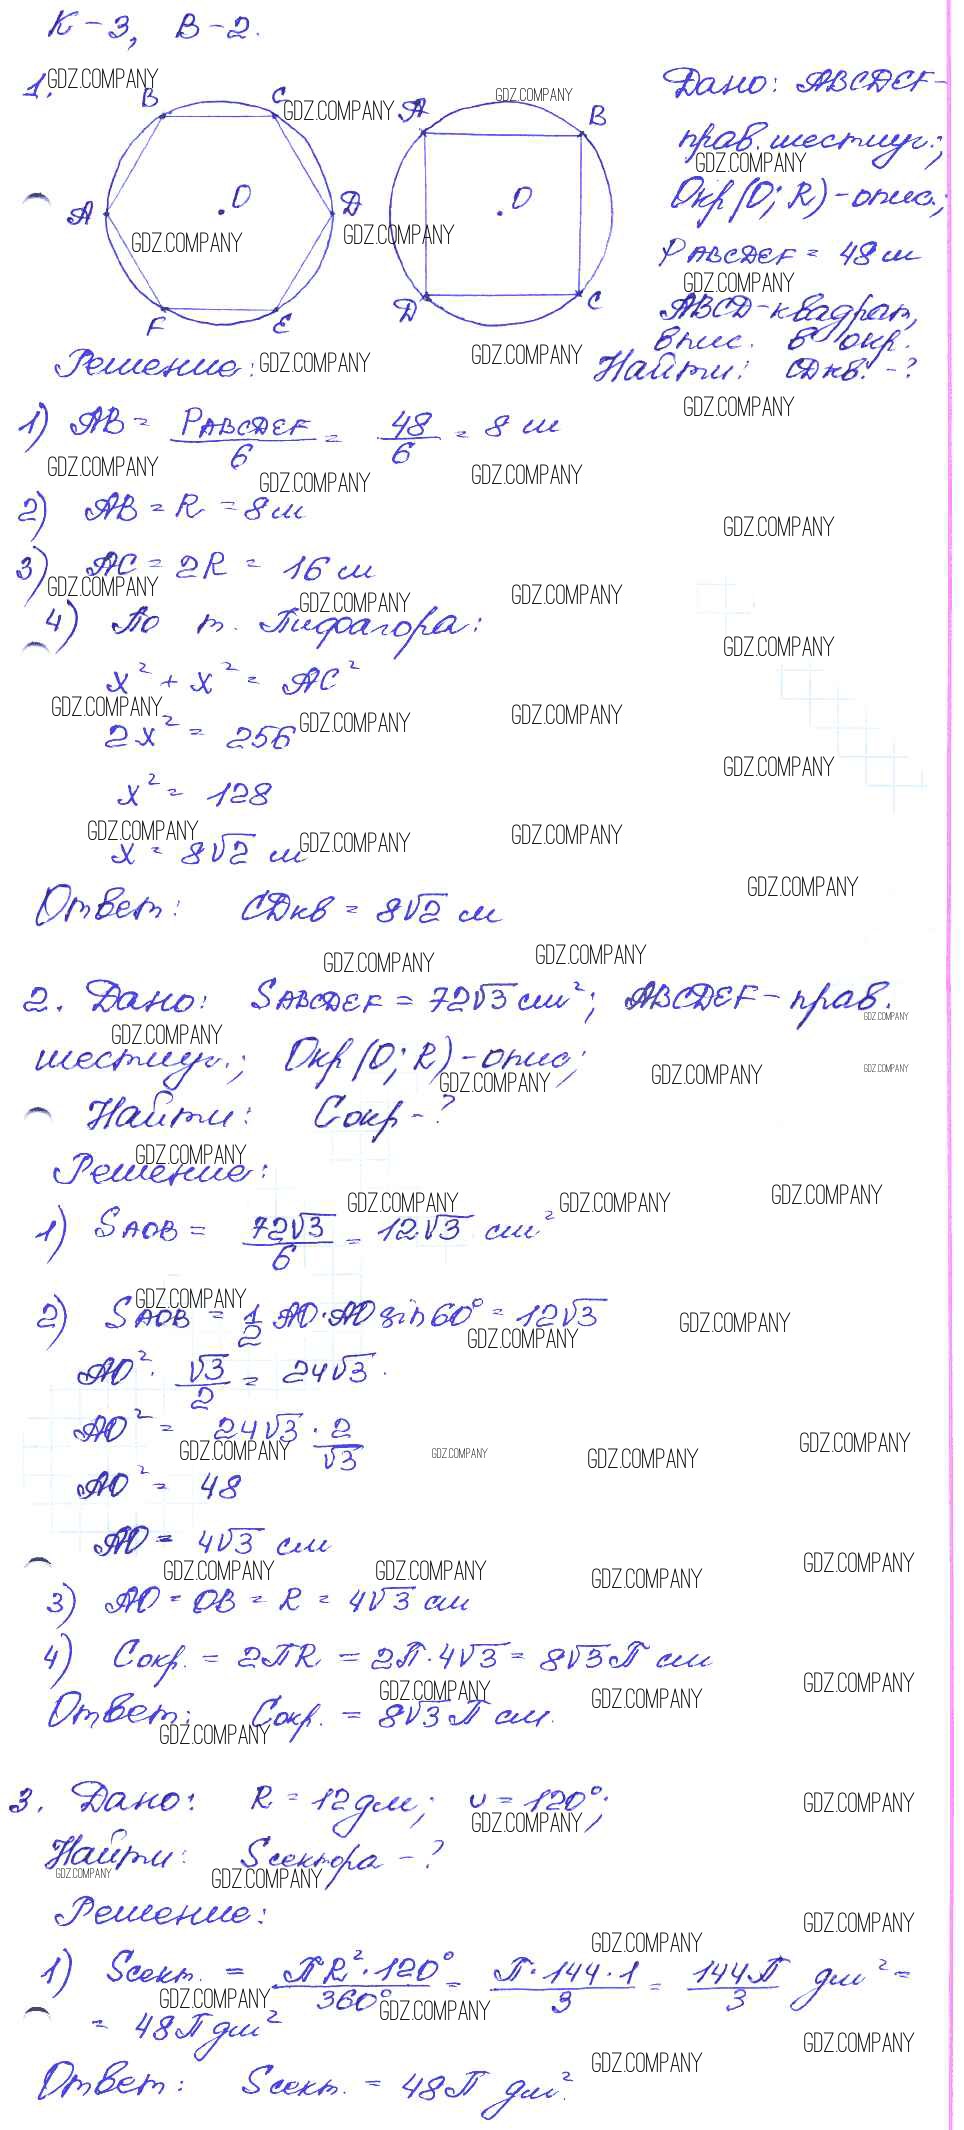 К-3, В-2.
1.
B C
A O D
F E
A B
O
D C
Дано: ABCDEF-
прав. шестиуг.;
Окр(O; R)-опис.;
P ABCDEF = 48 м
ABCD-квадрат,
впис. в окр.
Найти: CDкв. -?
Решение:
1) AB = P ABCDEF / 6 = 48/6 = 8 м
2) AB = R = 8 м
3) AC = 2R = 16 м
4) По т. Пифагора:
x² + x² = AC²
2x² = 256
x² = 128
x = 8√2 м
Ответ: CDкв = 8√2 м
2. Дано: S ABCDEF = 72√3 см²; ABCDEF-прав.
шестиуг.; Окр(O; R)-опис;
Найти: Cокр-?
Решение:
1) S AOB = 72√3/6 = 12√3 см²
2) S AOB = 1/2 AO·AO sin60° = 12√3
AO² · √3/2 = 24√3.
AO² = 24√3 · 2/√3
AO² = 48
AO = 4√3 см
3) AO = OB = R = 4√3 см
4) Cокр. = 2ПR = 2П·4√3 = 8√3П см
Ответ: Cокр. = 8√3П см.
3. Дано: R = 12дм; ∪ = 120°;
Найти: Sсектора -?
Решение:
1) Sсект. = ПR²·120°/360° = П·144·1/3 = 144П/3 дм² =
= 48П дм²
Ответ: Sсект. = 48П дм².
GDZ.COMPANY